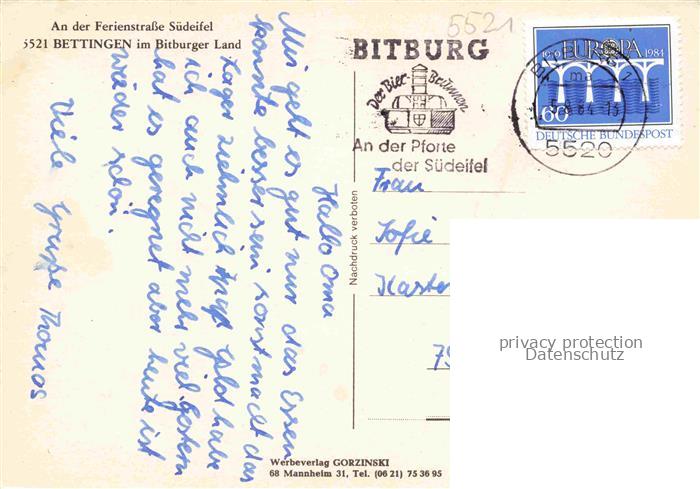 An der Ferienstraße Südeifel
5521 BETTINGEN im Bitburger Land
5521
BITBURG
Der Bier-Brunnen
An der Pforte
der Südeifel
1959 EUROPA 1984
60
DEUTSCHE BUNDESPOST
BITBURG 1
ma
5520
Hallo Oma
Mir geht es gut nur das Essen
könnte besser sein sonst macht das
Lager ziehmlich Spaß Geld habe
ich auch nicht mehr viel Gestern
hat es geregnet aber heute ist
wieder schön.
Viele Grüße Thomas
Nachdruck verboten
Frau
Sofie
Kaster
Werbeverlag GORZINSKI
68 Mannheim 31, Tel. (06 21) 75 36 95
privacy protection
Datenschutz